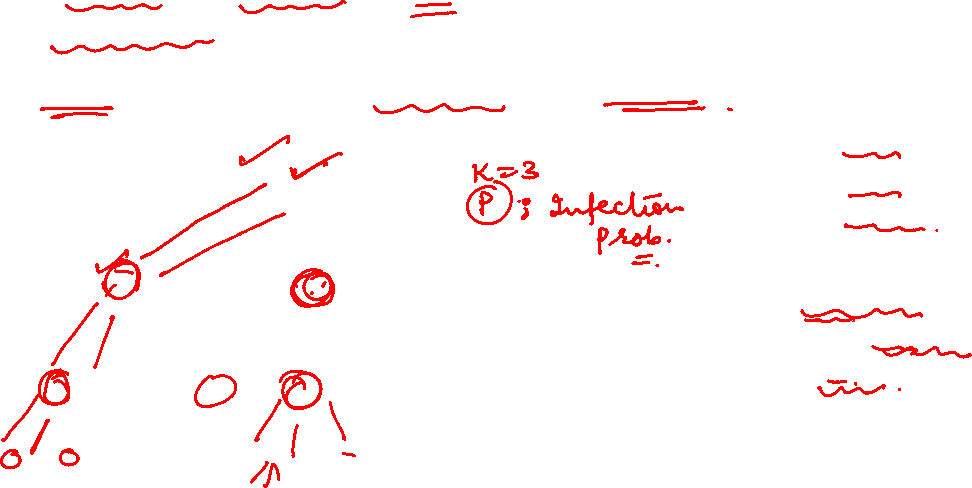 K=3
P ; Infection
prob.